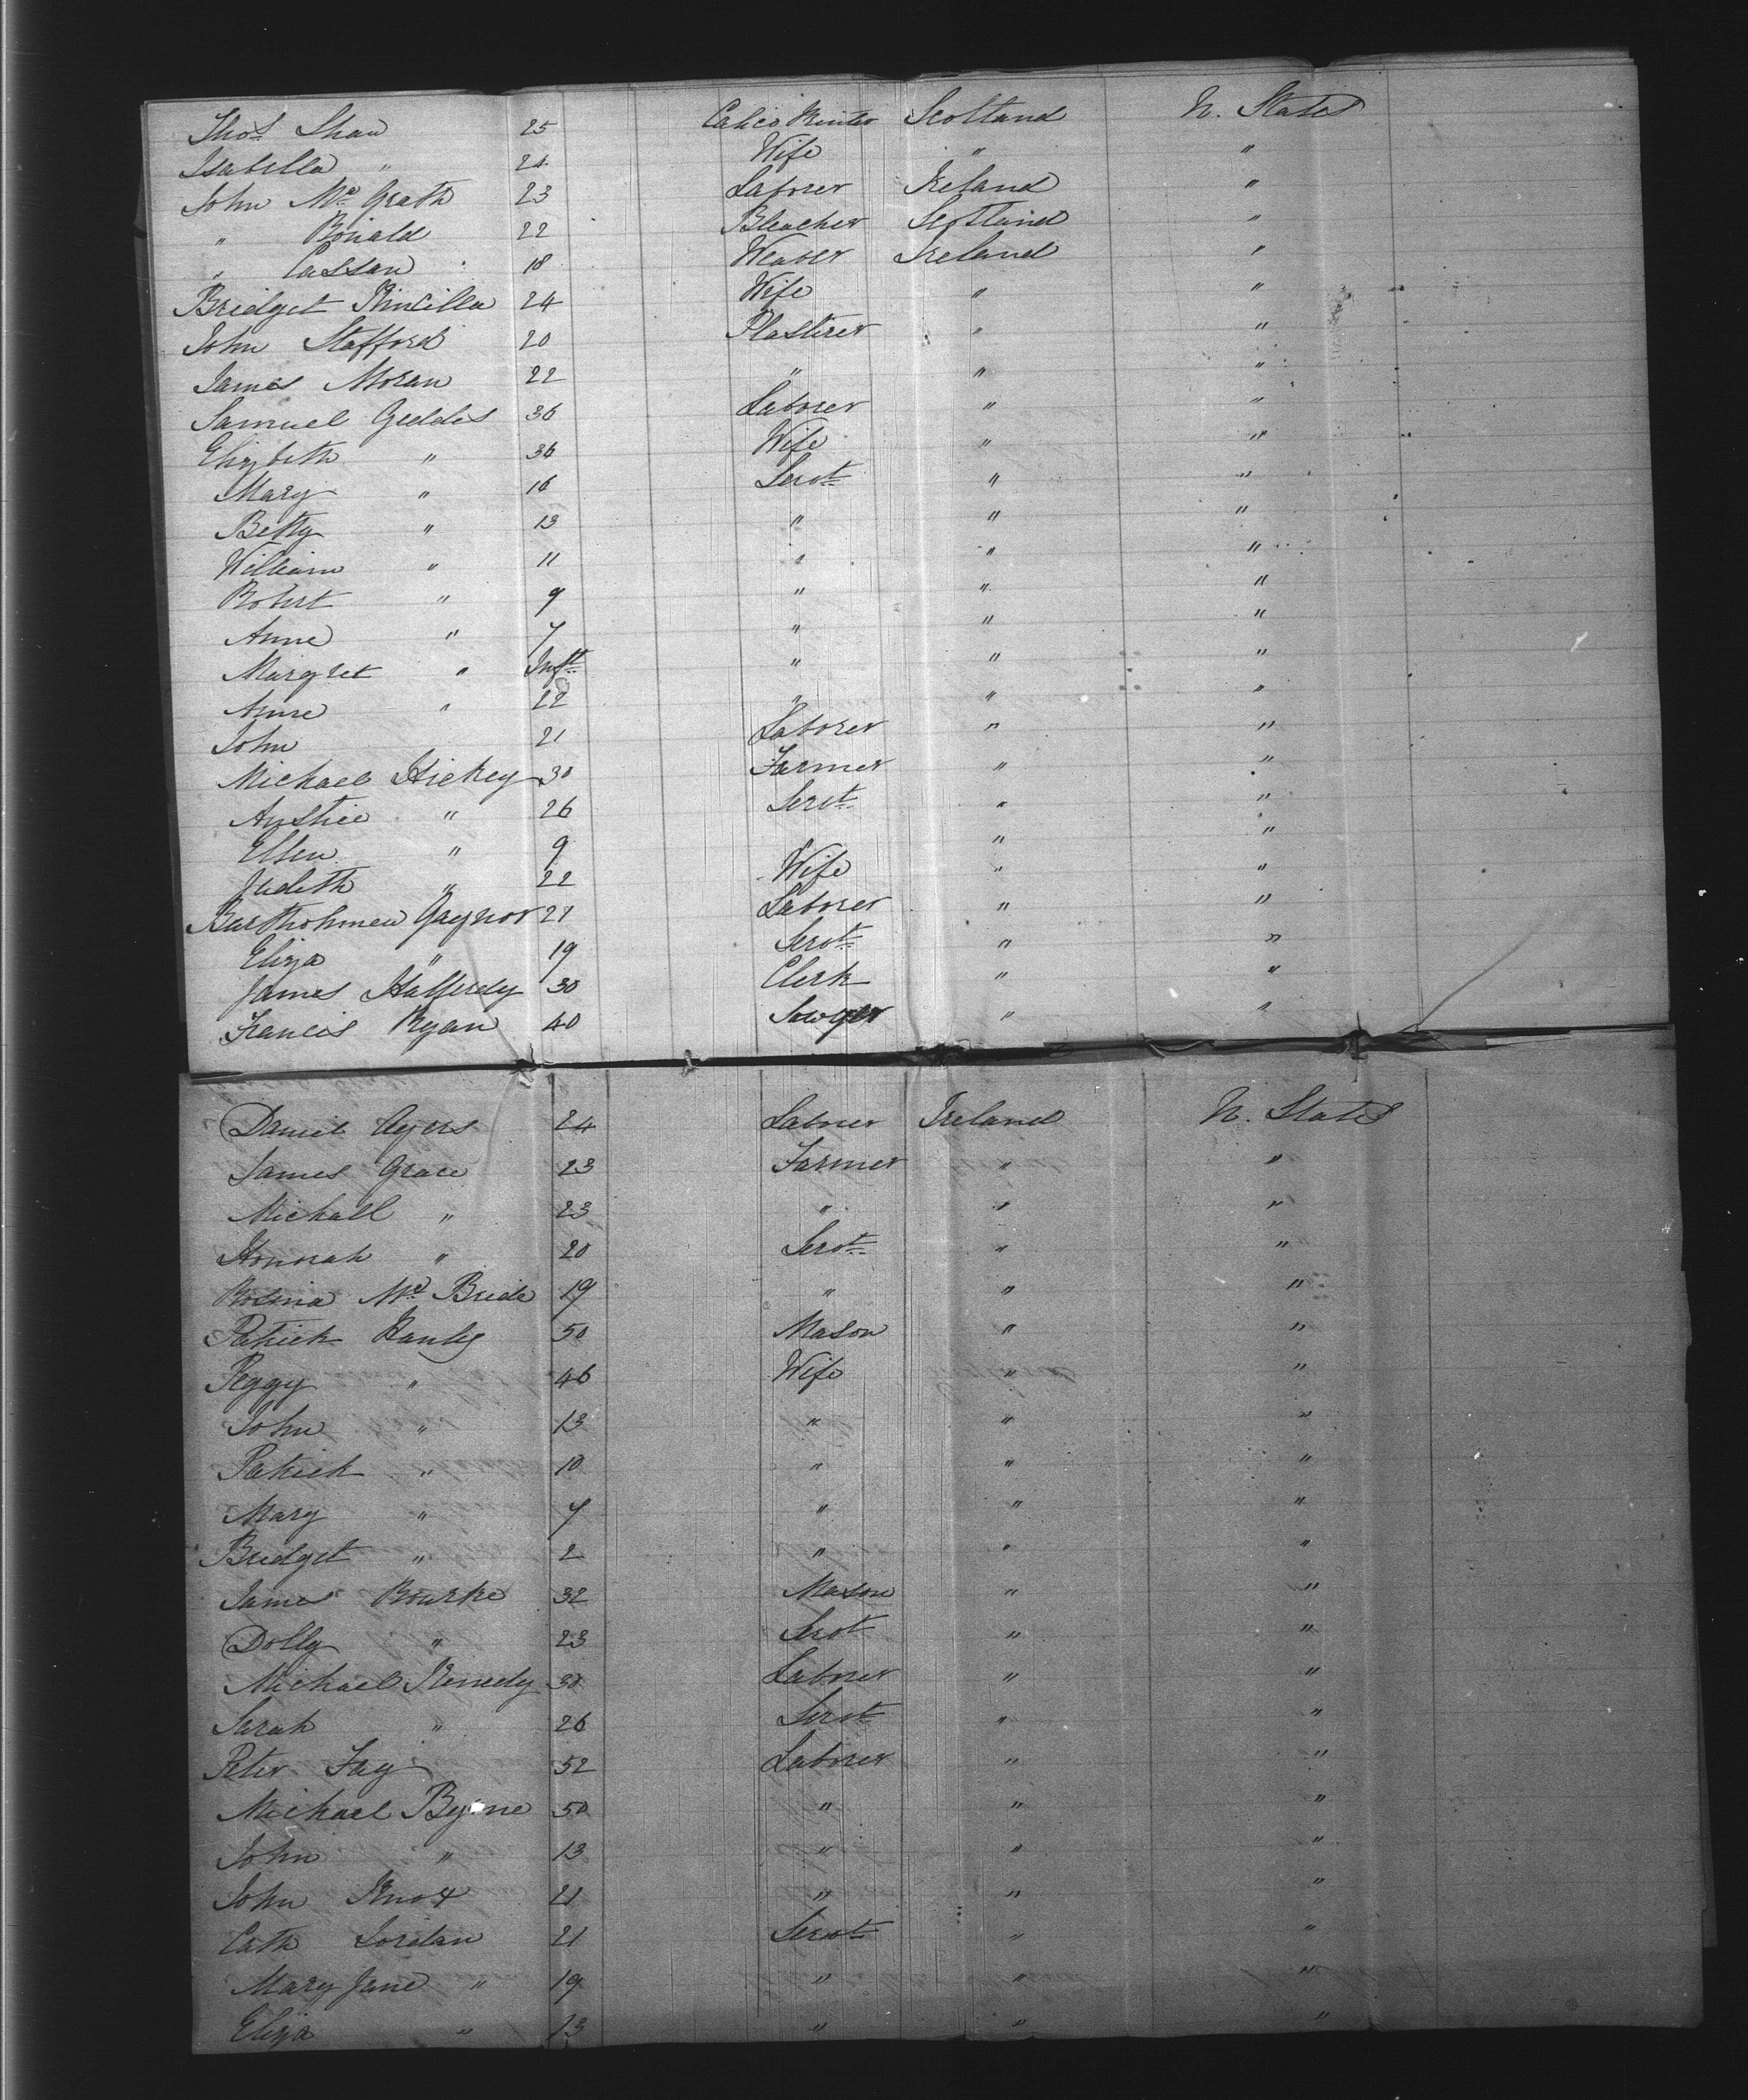 Thos Shaw 25 Calico Printer Scotland U. States
Isabella " 20 Wife " "
John Mc Grath 23 Laborer Ireland "
" Ronald 22 Bleacher Scotland "
" Cassan 18 Weaver Ireland "
Bridget 24 Wife " "
John Stafford 20 Plasterer " "
James Moran 22 " " "
Samuel Geddes 36 Laborer " "
Elizbeth " 36 Wife " "
Mary " 16 Servt " "
Betty " 13 " " "
William " 11 " " "
Robert " 9 " " "
Anne " 7 " " "
Margret " Inft " " "
Anne " 22 " " "
John 21 Laborer " "
Michael Hickey 30 Farmer " "
" 26 Servt " "
Ellen " 9 " "
Judith " 22 Wife " "
Bartholmew Gaynor 27 Laborer " "
Eliza " 19 Servt " "
James Hafferdy 30 Clerk " "
Francis Ryan 40 Sawyer " "
Daniel Ayers 24 Laborer Ireland U. States
James Grace 23 Farmer " "
Michall " 23 " " "
Honnah " 20 Servt " "
Rosina Mc Bride 19 " " "
Patrick Hanly 50 Mason " "
Peggy " 46 Wife " "
John " 13 " " "
Patrick " 10 " " "
Mary " 7 " " "
Bridget " 2 " " "
James Bourke 32 Mason " "
Dolly " 23 Servt " "
Michael Kenedy 30 Laborer " "
Sarah " 26 Servt " "
Peter Fay 52 Laborer " "
Michael Byrne 50 " " "
John " 13 " " "
John Knox 21 " " "
Cath Jordan 21 Servt " "
Mary Jane " 19 " " "
Eliza " 13 " " "